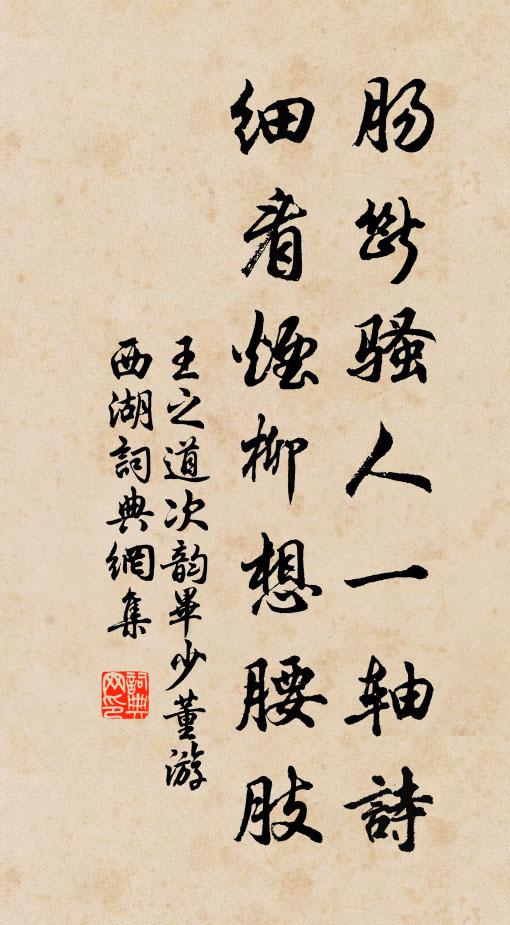 肠断骚人一轴詩
细看烟柳想腰肢
王之道次韵畢少董游
西湖詞典網集
詞典网印